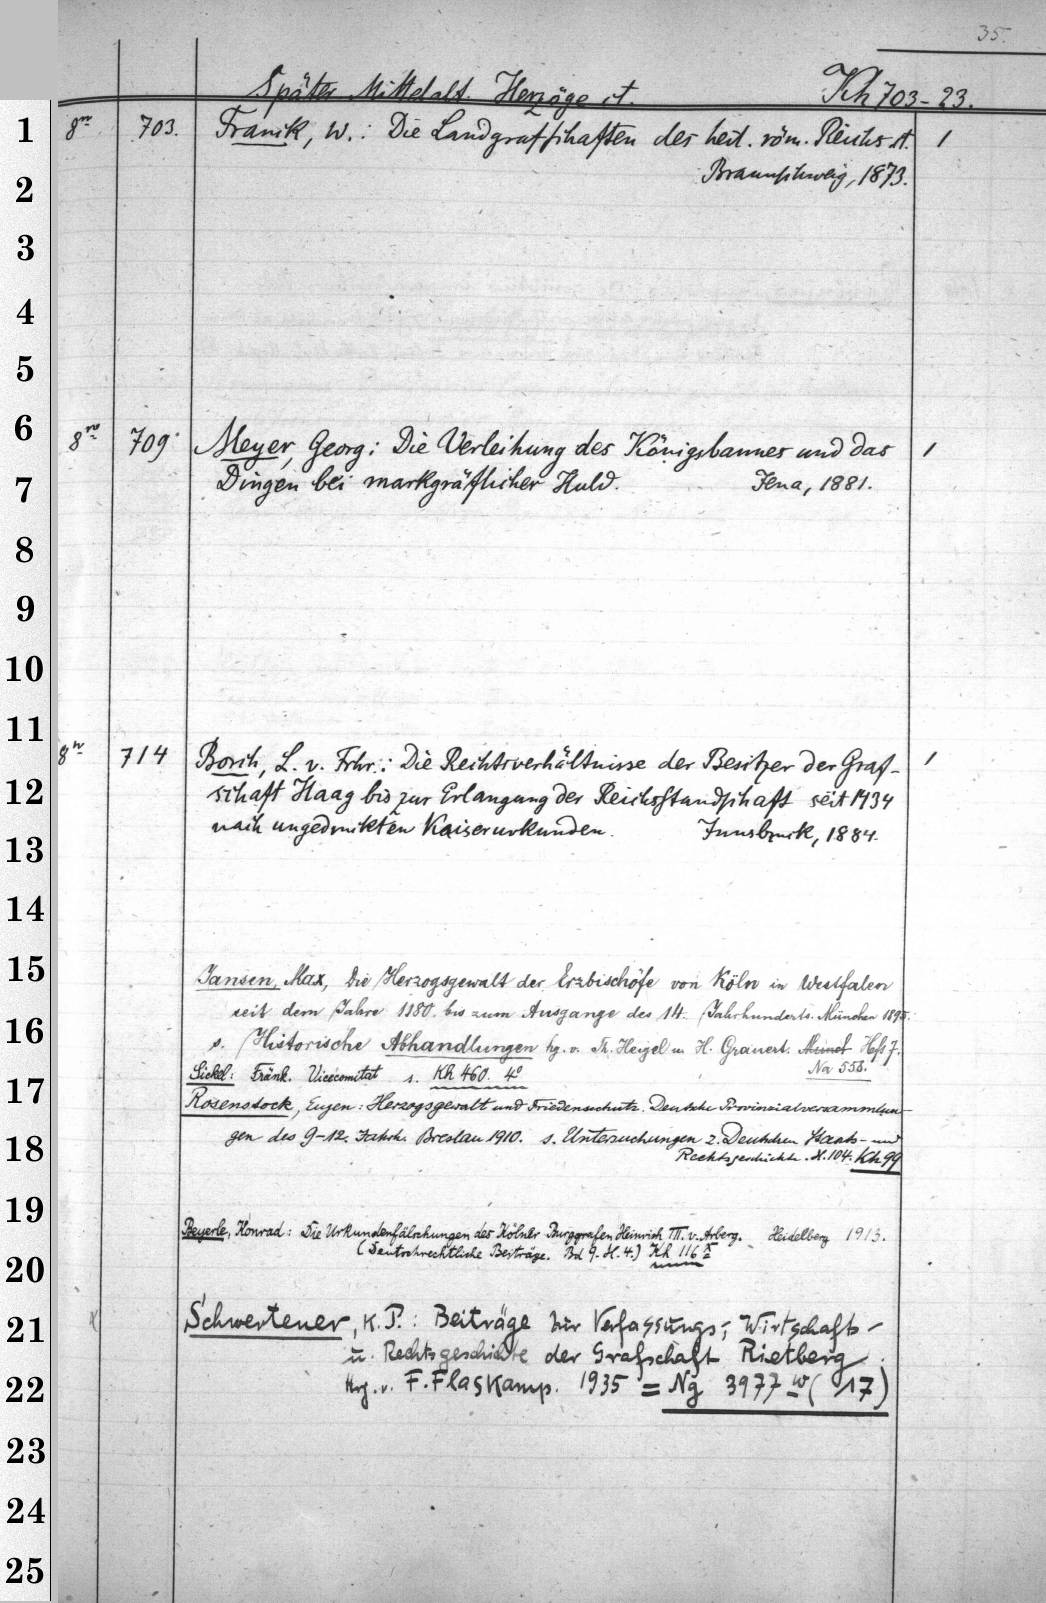 35.
Später Mittelalt. Herzöge et. Kh 703-23.
1 8º 703. Franck, W.: Die Landgrafschaften des heil. röm. Reichs. 1
Braunschweig, 1873.
2
3
4
5
6 8º 709. Meyer, Georg: Die Verleihung des Königsbannes und das 1
7 Dingen bei markgräflicher Huld. Jena, 1881.
8
9
10
11 8º 714 Borch, L. v. Frhr.: Die Rechtsverhältnisse der Besitzer der Graf- 1
12 schaft Haag bis zur Erlangung der Reichsstandschaft seit 1434
13 nach ungedruckten Kaiserurkunden. Innsbruck, 1884.
14
15 Jansen, Max, Die Herzogsgewalt der Erzbischöfe von Köln in Westfalen
seit dem Jahre 1180 bis zum Ausgange des 14. Jahrhunderts. München 1895.
16 s. Historische Abhandlungen hg. v. Th. Heigel u. H. Grauert. Heft 7.
Na 558.
17 Sickel: Fränk. Vicecomitat s. Kh 460. 4º
Rosenstock, Eugen: Herzogsgewalt und Friedensschutz. Deutsche Provinzialversammlun-
18 gen des 9-12. Jahrh. Breslau 1910. s. Untersuchungen z. Deutschen Staats- und
Rechtsgeschichte. H. 104. Kh 99
19 Beyerle, Konrad: Die Urkundenfälschungen des Kölner Burggrafen Heinrich III. v. Arberg. Heidelberg 1913.
20 (Deutschrechtliche Beiträge. Bd 9. H. 4.) Kh 116
21 Schwertener, K. P.: Beiträge zur Verfassungs-, Wirtschafts-
u. Rechtsgeschichte der Grafschaft Rietberg.
22 Hrg. v. F. Flaskamp. 1935 = Ng 3977 w (17)
23
24
25